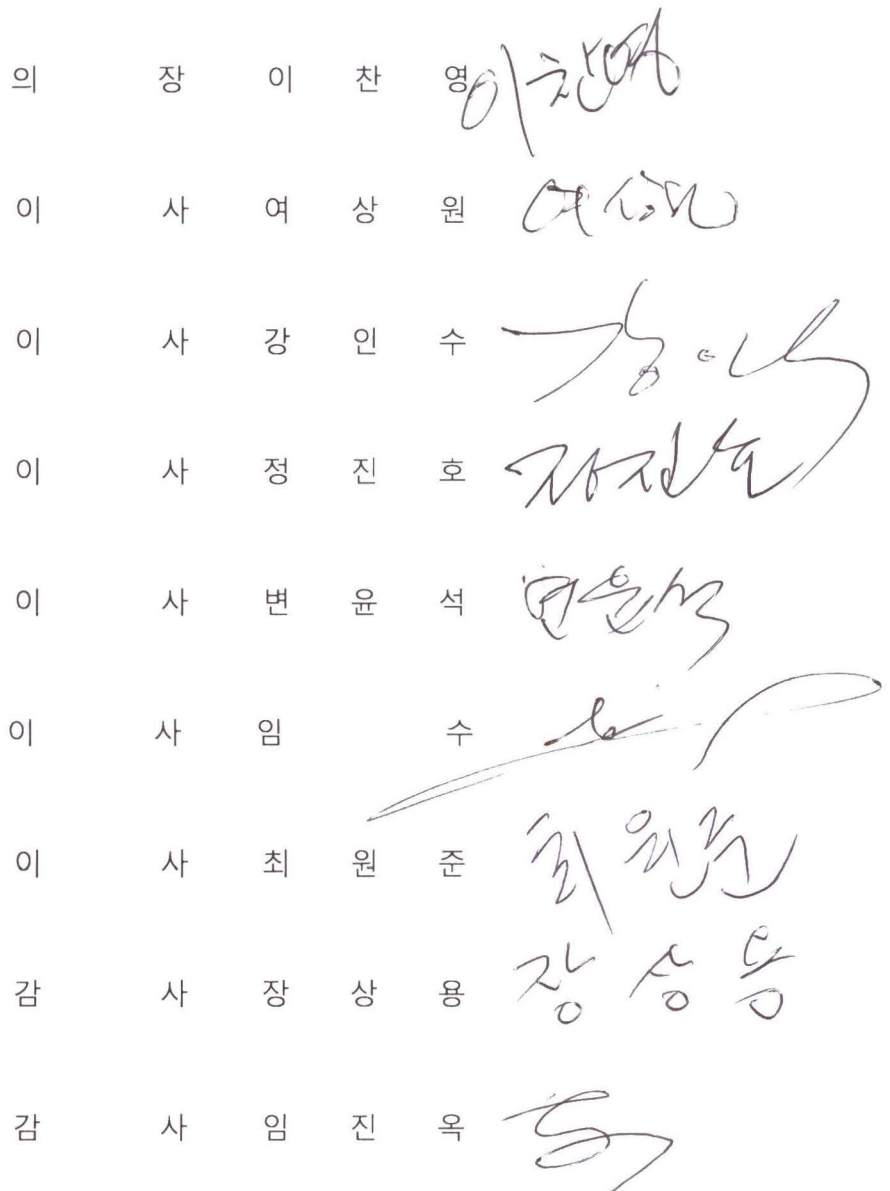 의 장 이 찬 영 이찬영
이 사 여 상 원 여상원
이 사 강 인 수
이 사 정 진 호 정진호
이 사 변 윤 석 변윤석
이 사 임 수
이 사 최 원 준 최원준
감 사 장 상 용 장상용
감 사 임 진 옥